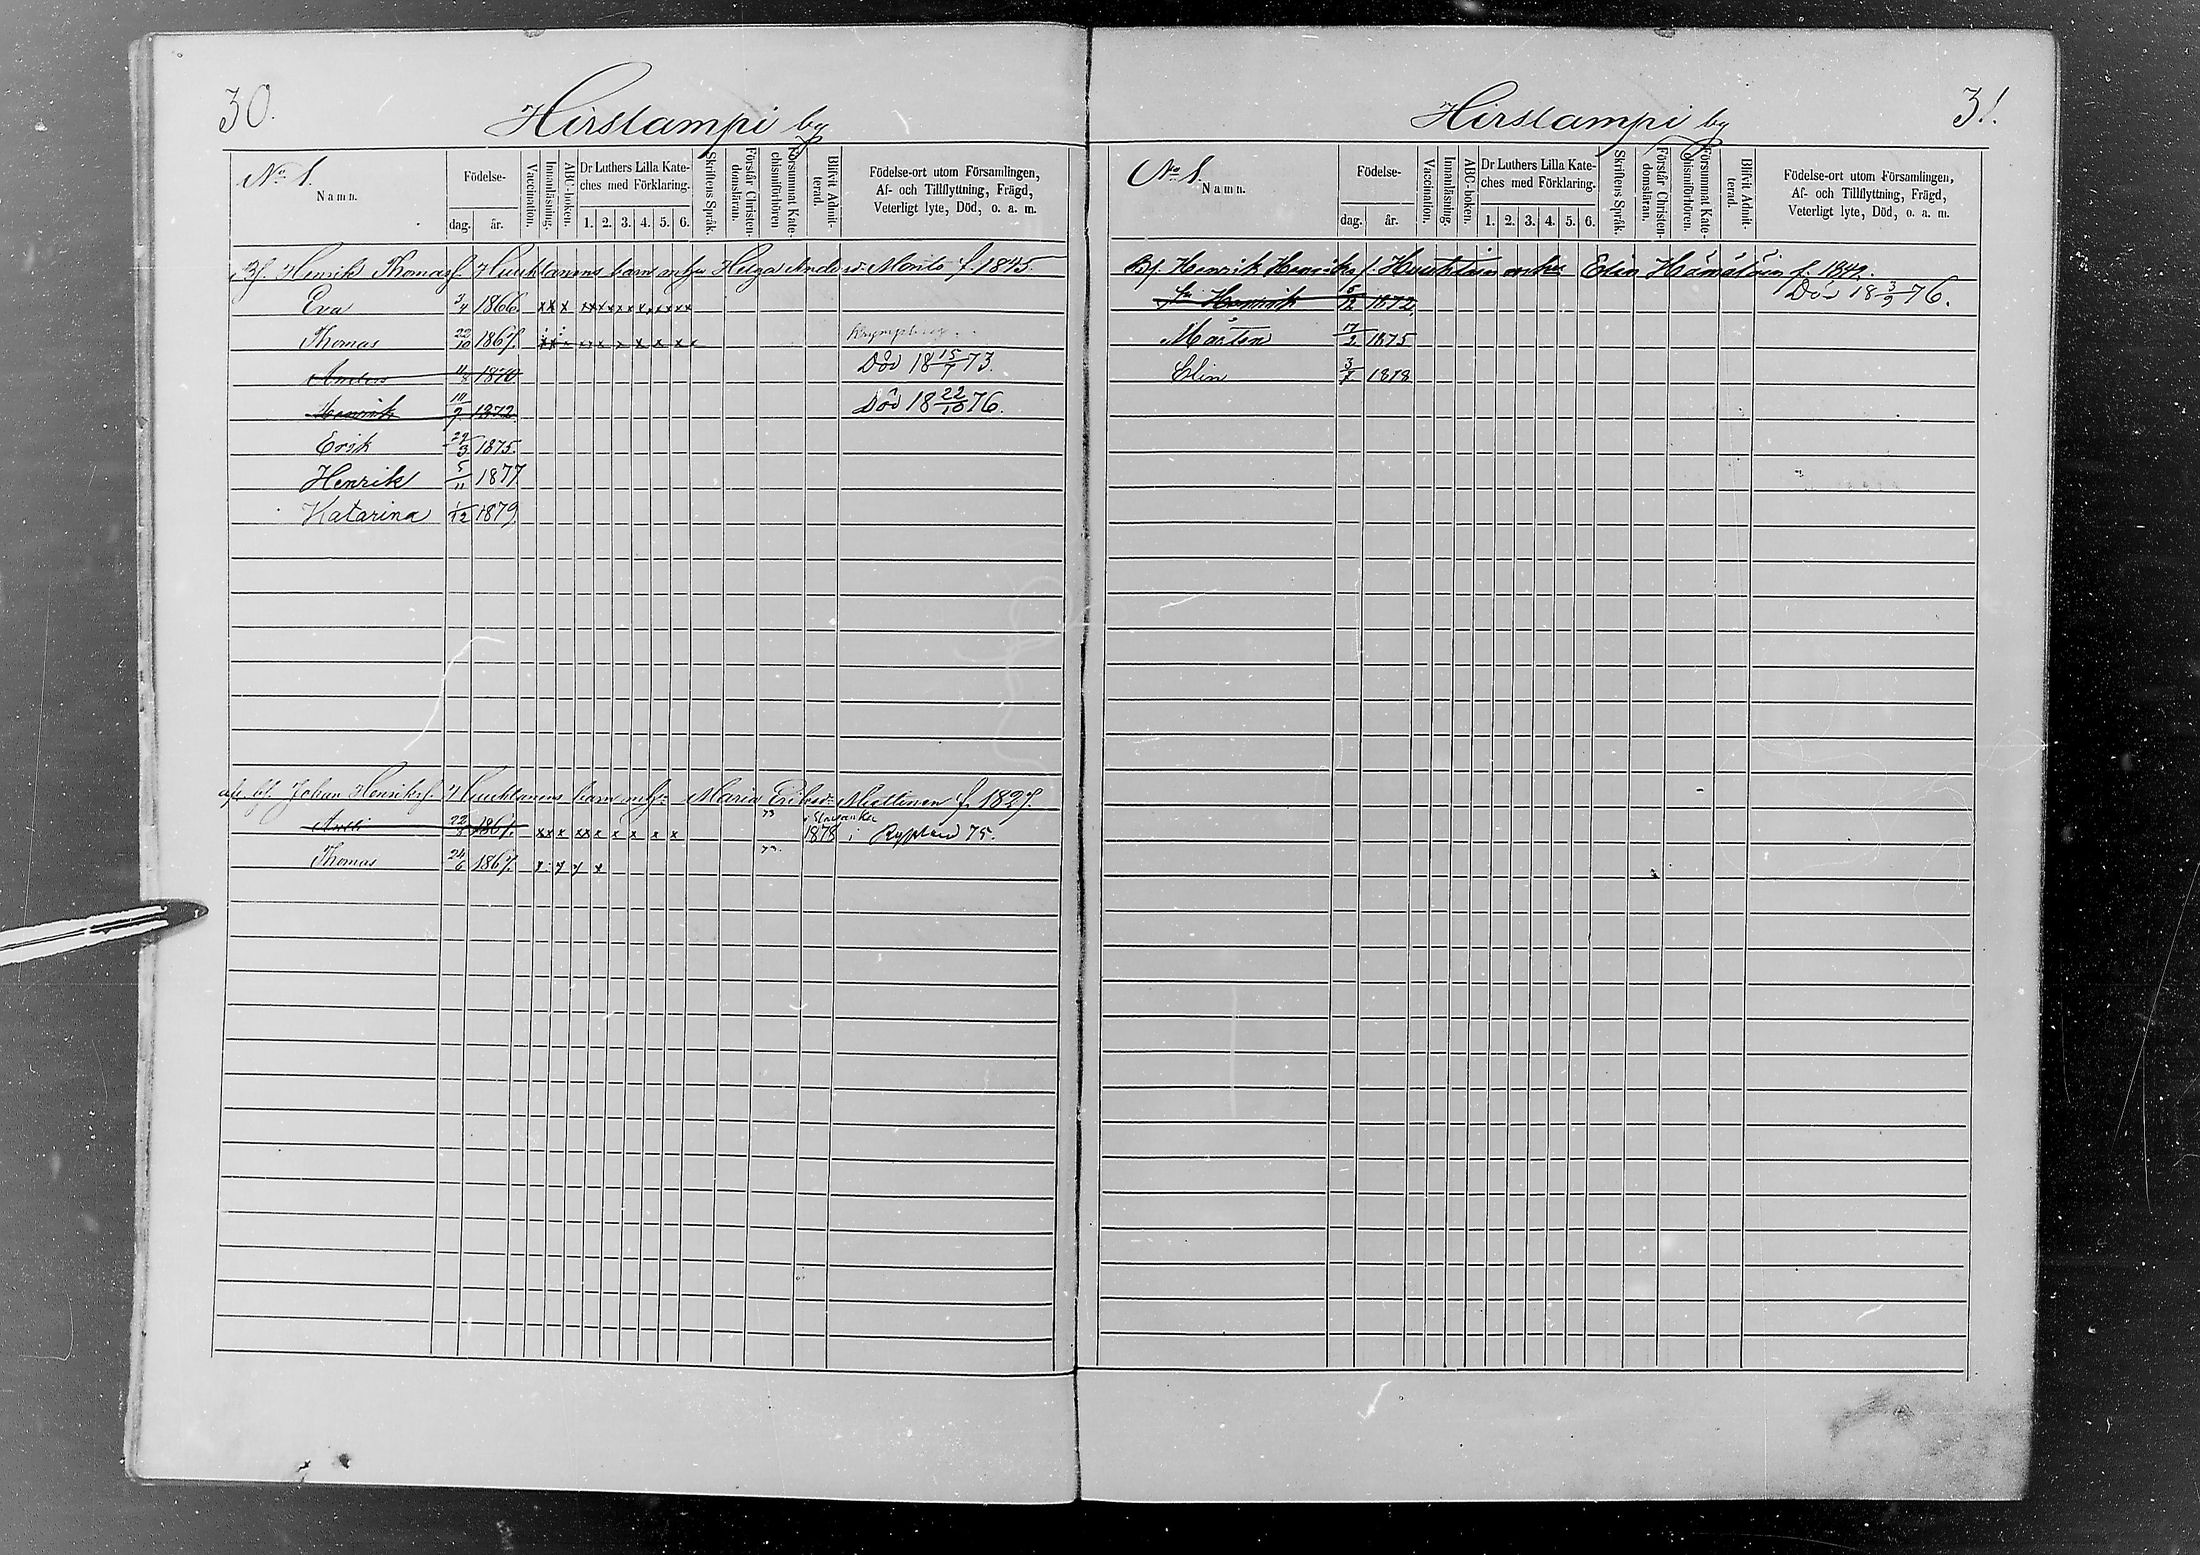 30.
Hirslampi by
No 1.
Namn.
Födelse-
dag.
år.
Vaccination.
Innanläsning.
ABC-boken.
Dr Luthers Lilla Kate-
ches med Förklaring.
1. 2. 3. 4. 5. 6.
Skriftens Språk.
Förstår Christen-
domsläran.
Försummat Kate-
chismiförhören
Blifvit Admit-
terad.
Födelse-ort utom Församlingen,
Af- och Tillflyttning, Frägd,
Veterligt lyte, Död, o. a. m.
Bf. Henrik Thomasf. Huuhtanens barn m hu Helga Andersd: f. 1845.
Eva 3/4 1866. x x x x x x x x x x x x x
Thomas 22/10 1867.
Anders 11/8 1870 Död 18 15/7 73.
Henrik 10/9 1872. Död 18 22/10 76.
Erik 29/3 1875.
Henrik 5/11 1877
Katarina 1/12 1879.
afl. bf Johan Henriksf. Huuhtanens barn m hu Maria Eriksd: Miettinen f. 1827.
Antti 22/8 1867. x x x x x x x x x x 73 1878 i 75.
Thomas 24/6 1867. x x x x 73.
31.
Hirslampi by
No 1.
Namn.
Födelse-
dag.
år.
Vaccination.
Innanläsning.
ABC-boken.
Dr Luthers Lilla Kate-
ches med Förklaring.
1. 2. 3. 4. 5. 6.
Skriftens Språk.
Förstår Christen-
domsläran.
Försummat Kate-
chismiförhören.
Blifvit Admit-
terad.
Födelse-ort utom Församlingen,
Af- och Tillflyttning, Frägd,
Veterligt lyte, Död, o. a. m.
Bf. Henrik Henriksf. Huuhtain m hu Elin Hämäläin f. 1849.
Henrik 15/12 1872. Död 18 3/9 76.
Mårten 17/2 1875
Elin 3/8 1878